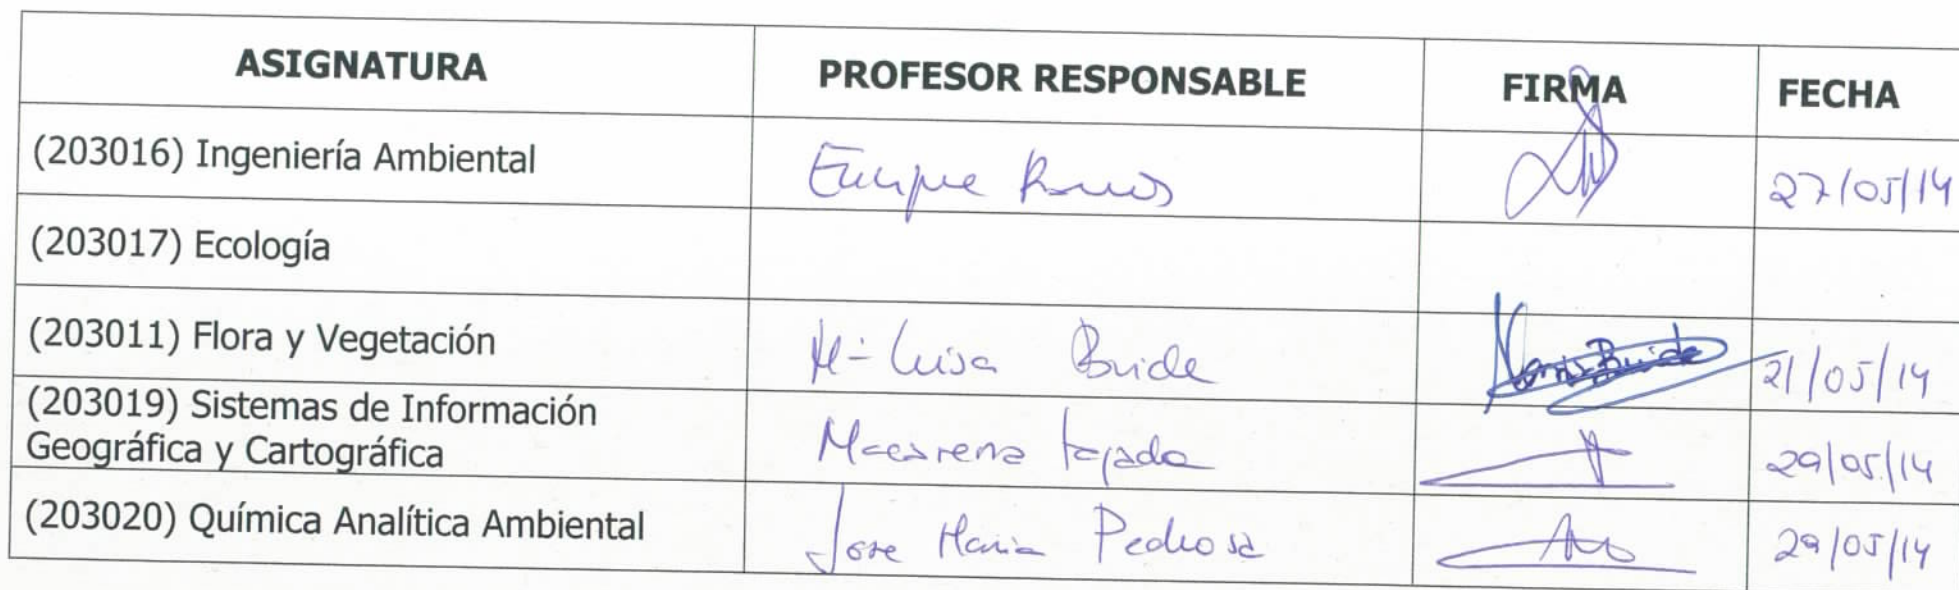 ASIGNATURA PROFESOR RESPONSABLE FIRMA FECHA
(203016) Ingeniería Ambiental Enrique Ramos 27/05/14
(203017) Ecología
(203011) Flora y Vegetación Mª Luisa Buide 21/05/14
(203019) Sistemas de Información
Geográfica y Cartográfica Macarena Tejada 29/05/14
(203020) Química Analítica Ambiental Jose Maria Pedrosa 29/05/14